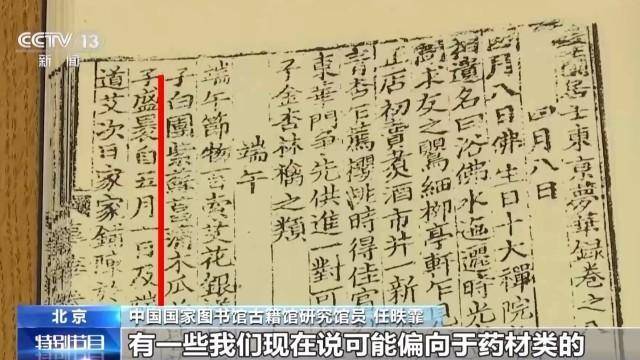 CCTV 13
新闻
居士東京夢華録卷之
四月八日
四月八日佛生日十大禪院
相遺名曰浴佛水迤邐時光
求友之鸎細柳亭軒乍見
正店初賣煮酒市井一新
青杏下薦櫻桃時得佳賓
東華門爭先供進一對可
子金杏林檎之類
端午
端午節物百索艾花銀
子白團紫蘇菖蒲木瓜
子盛裹自五月一日及端
道艾次日家家鋪陳於
北京
中国国家图书馆古籍馆研究馆员 任昳霏
特别节目
有一些我们现在说可能偏向于药材类的